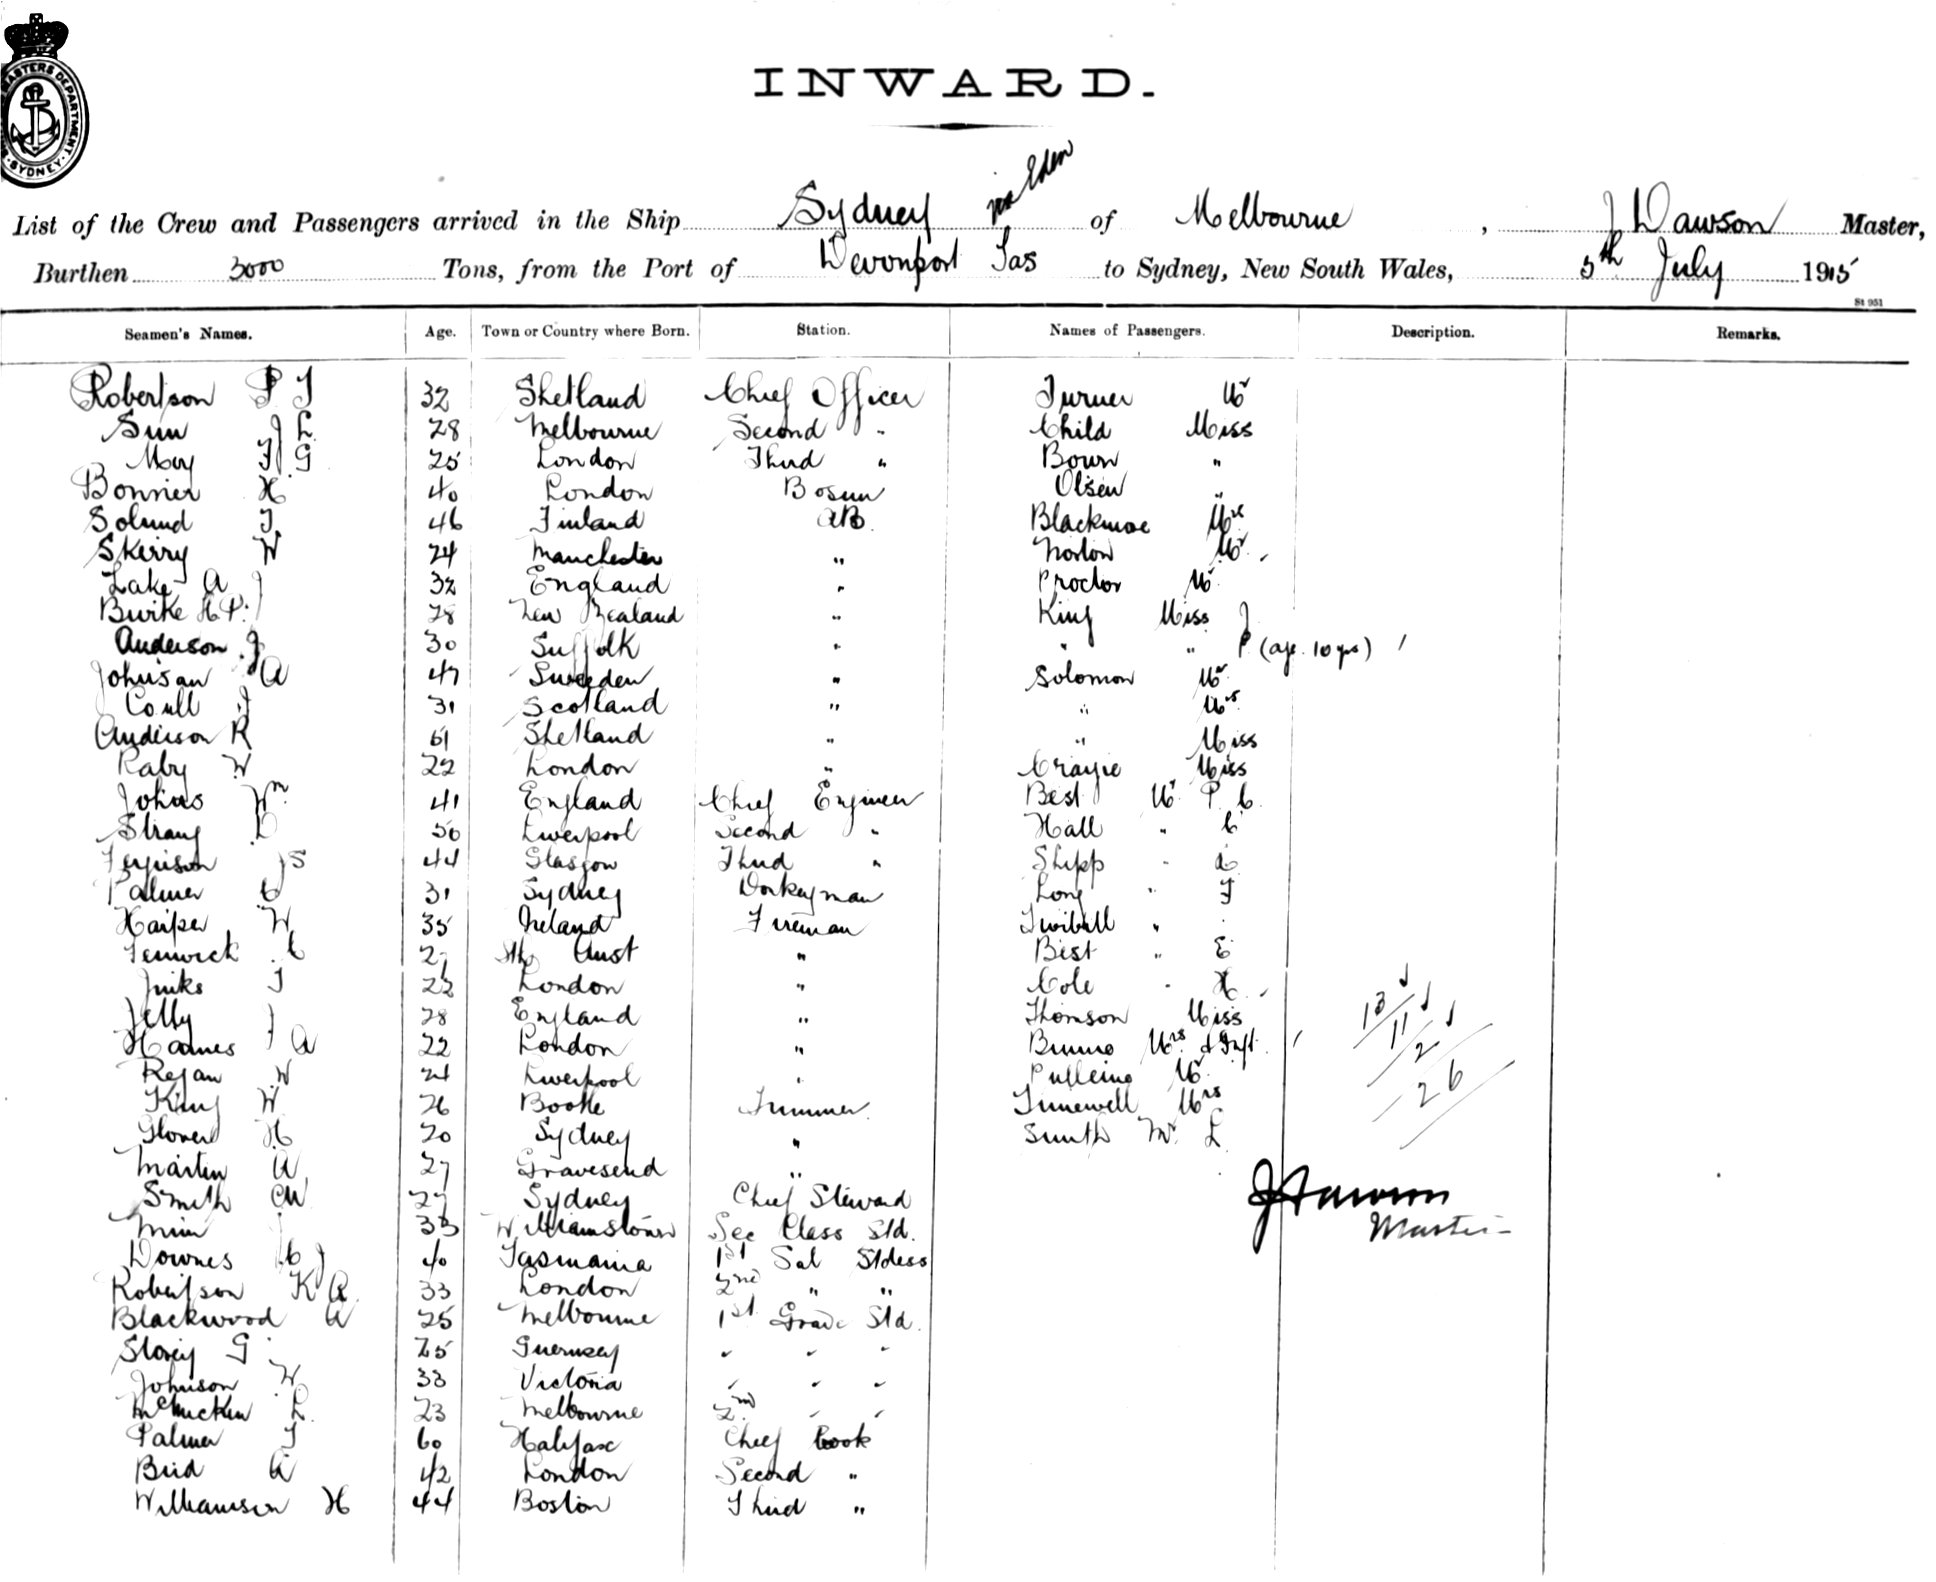 MASTERS DEPARTMENT
SYDNEY
INWARD.
via Eden
List of the Crew and Passengers arrived in the Ship Sydney of Melbourne, J Dawson Master,
Burthen 3000 Tons, from the Port of Devonport Tas to Sydney, New South Wales, 5th July 1915
St 951
Seamen's Names. Age. Town or Country where Born. Station. Names of Passengers. Description. Remarks.
Robertson P J 32 Shetland Chief Officer Turner Mr
28 Melbourne Second " Child Miss
25 London Third " Bown "
H 40 London Bosun Olsen "
46 Finland AB.
Skerry W 24 Manchester " Norton Mr
Lake A 32 England " Proctor Mr
Burke H P. 28 New Zealand " King Miss J
Anderson J 30 Suffolk " " " P (age 10 yrs)
A 47 Sweden " Solomon Mr
Coull J 31 Scotland " " Mrs
Anderson R 61 Shetland " " Miss
Raby W 22 London " Miss
Johns Wm 41 England Chief Engineer Best Mr P C.
Strang 50 Liverpool Second " Hall " C
Ferguson J S 44 Glasgow Third " Shipp "
Palmer C 31 Sydney Donkeyman Long " F
Harper W 35 Ireland Fireman Twibill "
Fenwick C 27 Sth Aust " Best " E
Jinks J 23 London " Cole " H
Jelly J 28 England " Thomson Miss
Haames A 22 London " Mrs & Inft.
Regan W 24 Liverpool " Pulleine Mr
King W 26 Bootle Trimmer. Mrs
Glover H 20 Sydney " Smith Mr L
Martin A 27 Gravesend "
Smith 27 Sydney Chief Steward
33 Williamstown Sec Class Std.
Downes C J 40 Tasmania 1st Sal Stdess
Robertson K A. 33 London 2nd " "
Blackwood A 25 Melbourne 1st Grade Std.
Storey G 25 Guernsey " " "
Johnson W 33 Victoria " " "
L. 23 Melbourne 2nd " "
Palmer J 60 Halifax Chief Cook
Bird A 42 London Second "
Williamson H 44 Boston Third "
13
11
2
26
J Dawson
Master